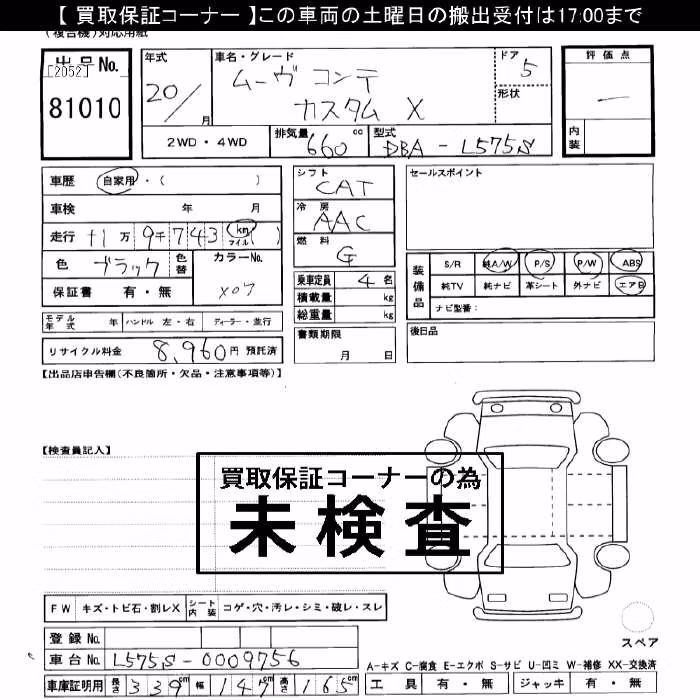 【 買取保証コーナー 】この車両の土曜日の搬出受付は17:00まで
(複合機)対応用紙
出品No.
[2052]
81010
年式
20/
月
車名・グレード
ムーヴ コンテ
カスタム X
ドア
5
形状
評価点
内装
2WD・4WD
排気量
660 cc
型式
DBA-L575S
車歴 自家用・( )
車検 年 月
走行 11万 9千 7 4 3 km マイル ( )
色 ブラック 色替
カラーNo.
X07
保証書 有・無
モデル年式 年 ハンドル 左・右 ディーラー・並行
リサイクル料金 8,960円 預託済
シフト
CAT
冷房
AAC
燃料
G
乗車定員 4 名
積載量 kg
総重量 kg
書類期限
月 日
セールスポイント
装備品
S/R 純A/W P/S P/W ABS
純TV 純ナビ 革シート 外ナビ エアB
ナビ型番:
後日品
【出品店申告欄(不良箇所・欠品・注意事項等)】
【検査員記入】
買取保証コーナーの為
未検査
FW キズ・トビ石・割レX シート内装 コゲ・穴・汚レ・シミ・破レ・スレ
登録No.
車台No. L575S-0009756
車庫証明用 長さ 339 cm 幅 147 cm 高さ 165 cm
スペア
A-キズ C-腐食 E-エクボ S-サビ U-凹ミ W-補修 XX-交換済
工具 有・無 ジャッキ 有・無